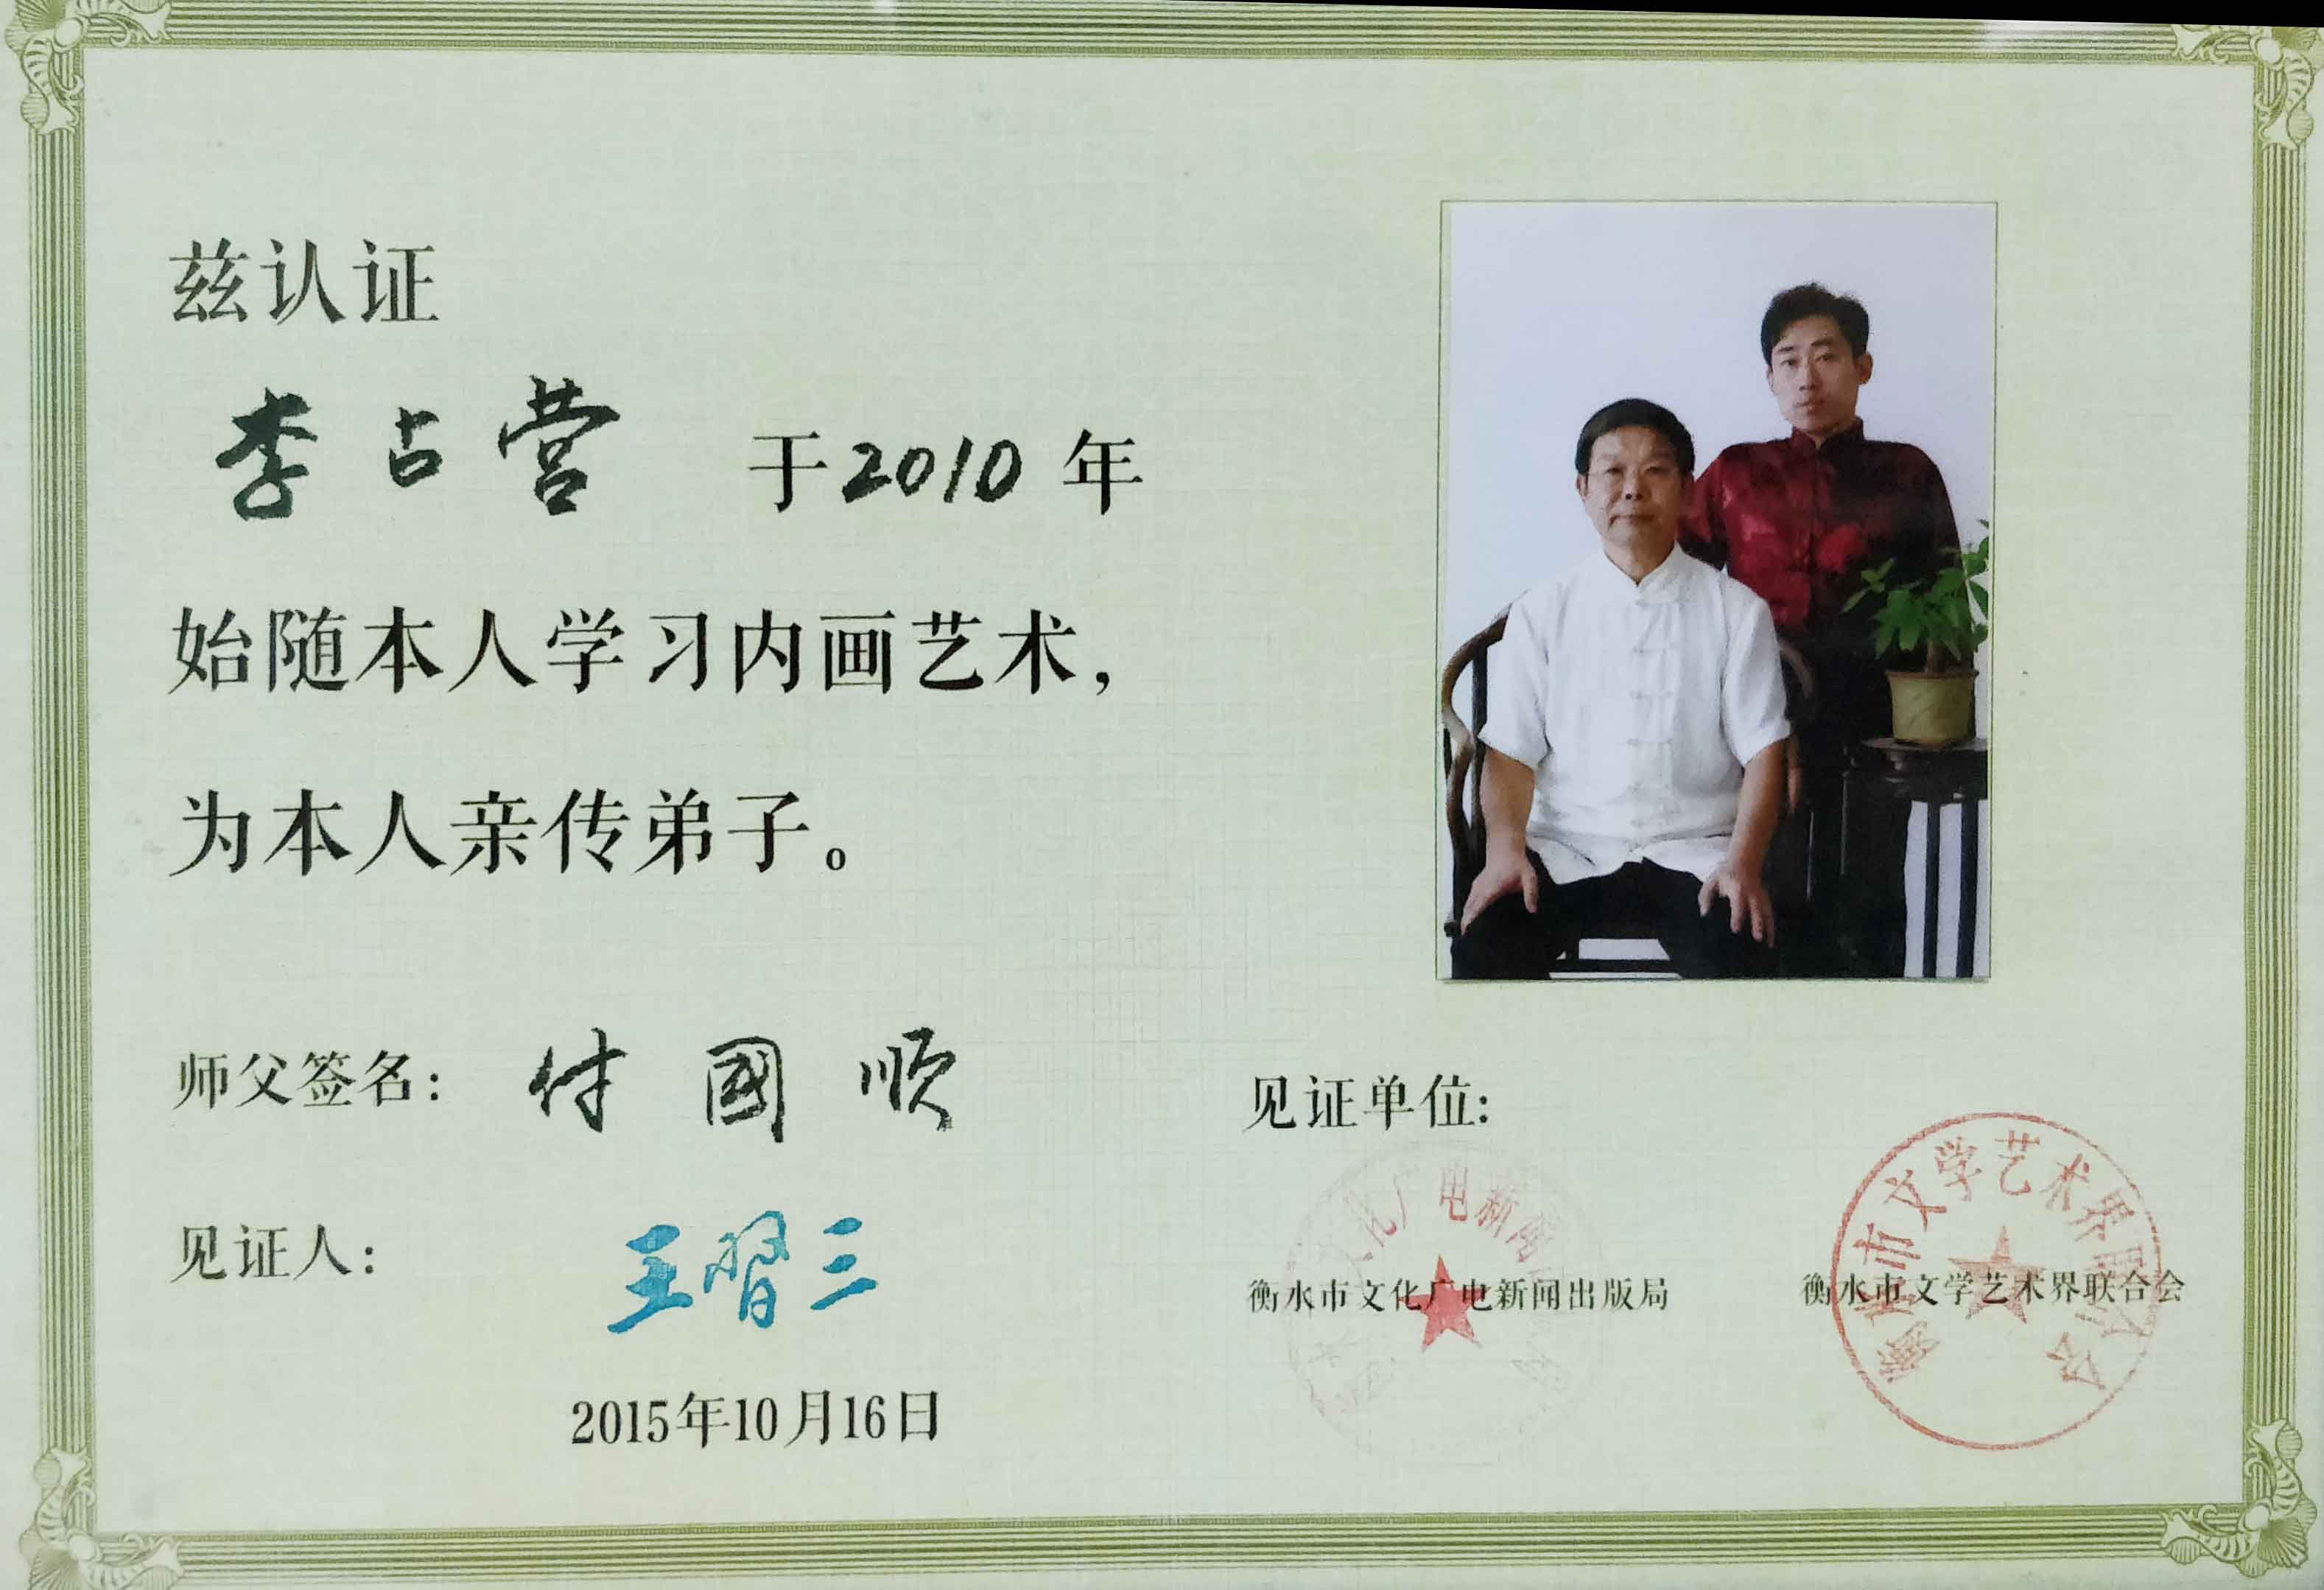 兹认证
李占营 于2010年
始随本人学习内画艺术，
为本人亲传弟子。
师父签名：付國順
见证人：王習三
2015年10月16日
见证单位：
衡水市文化广电新闻出版局
衡水市文学艺术界联合会
文化广电新闻
衡水市文学艺术界联合会